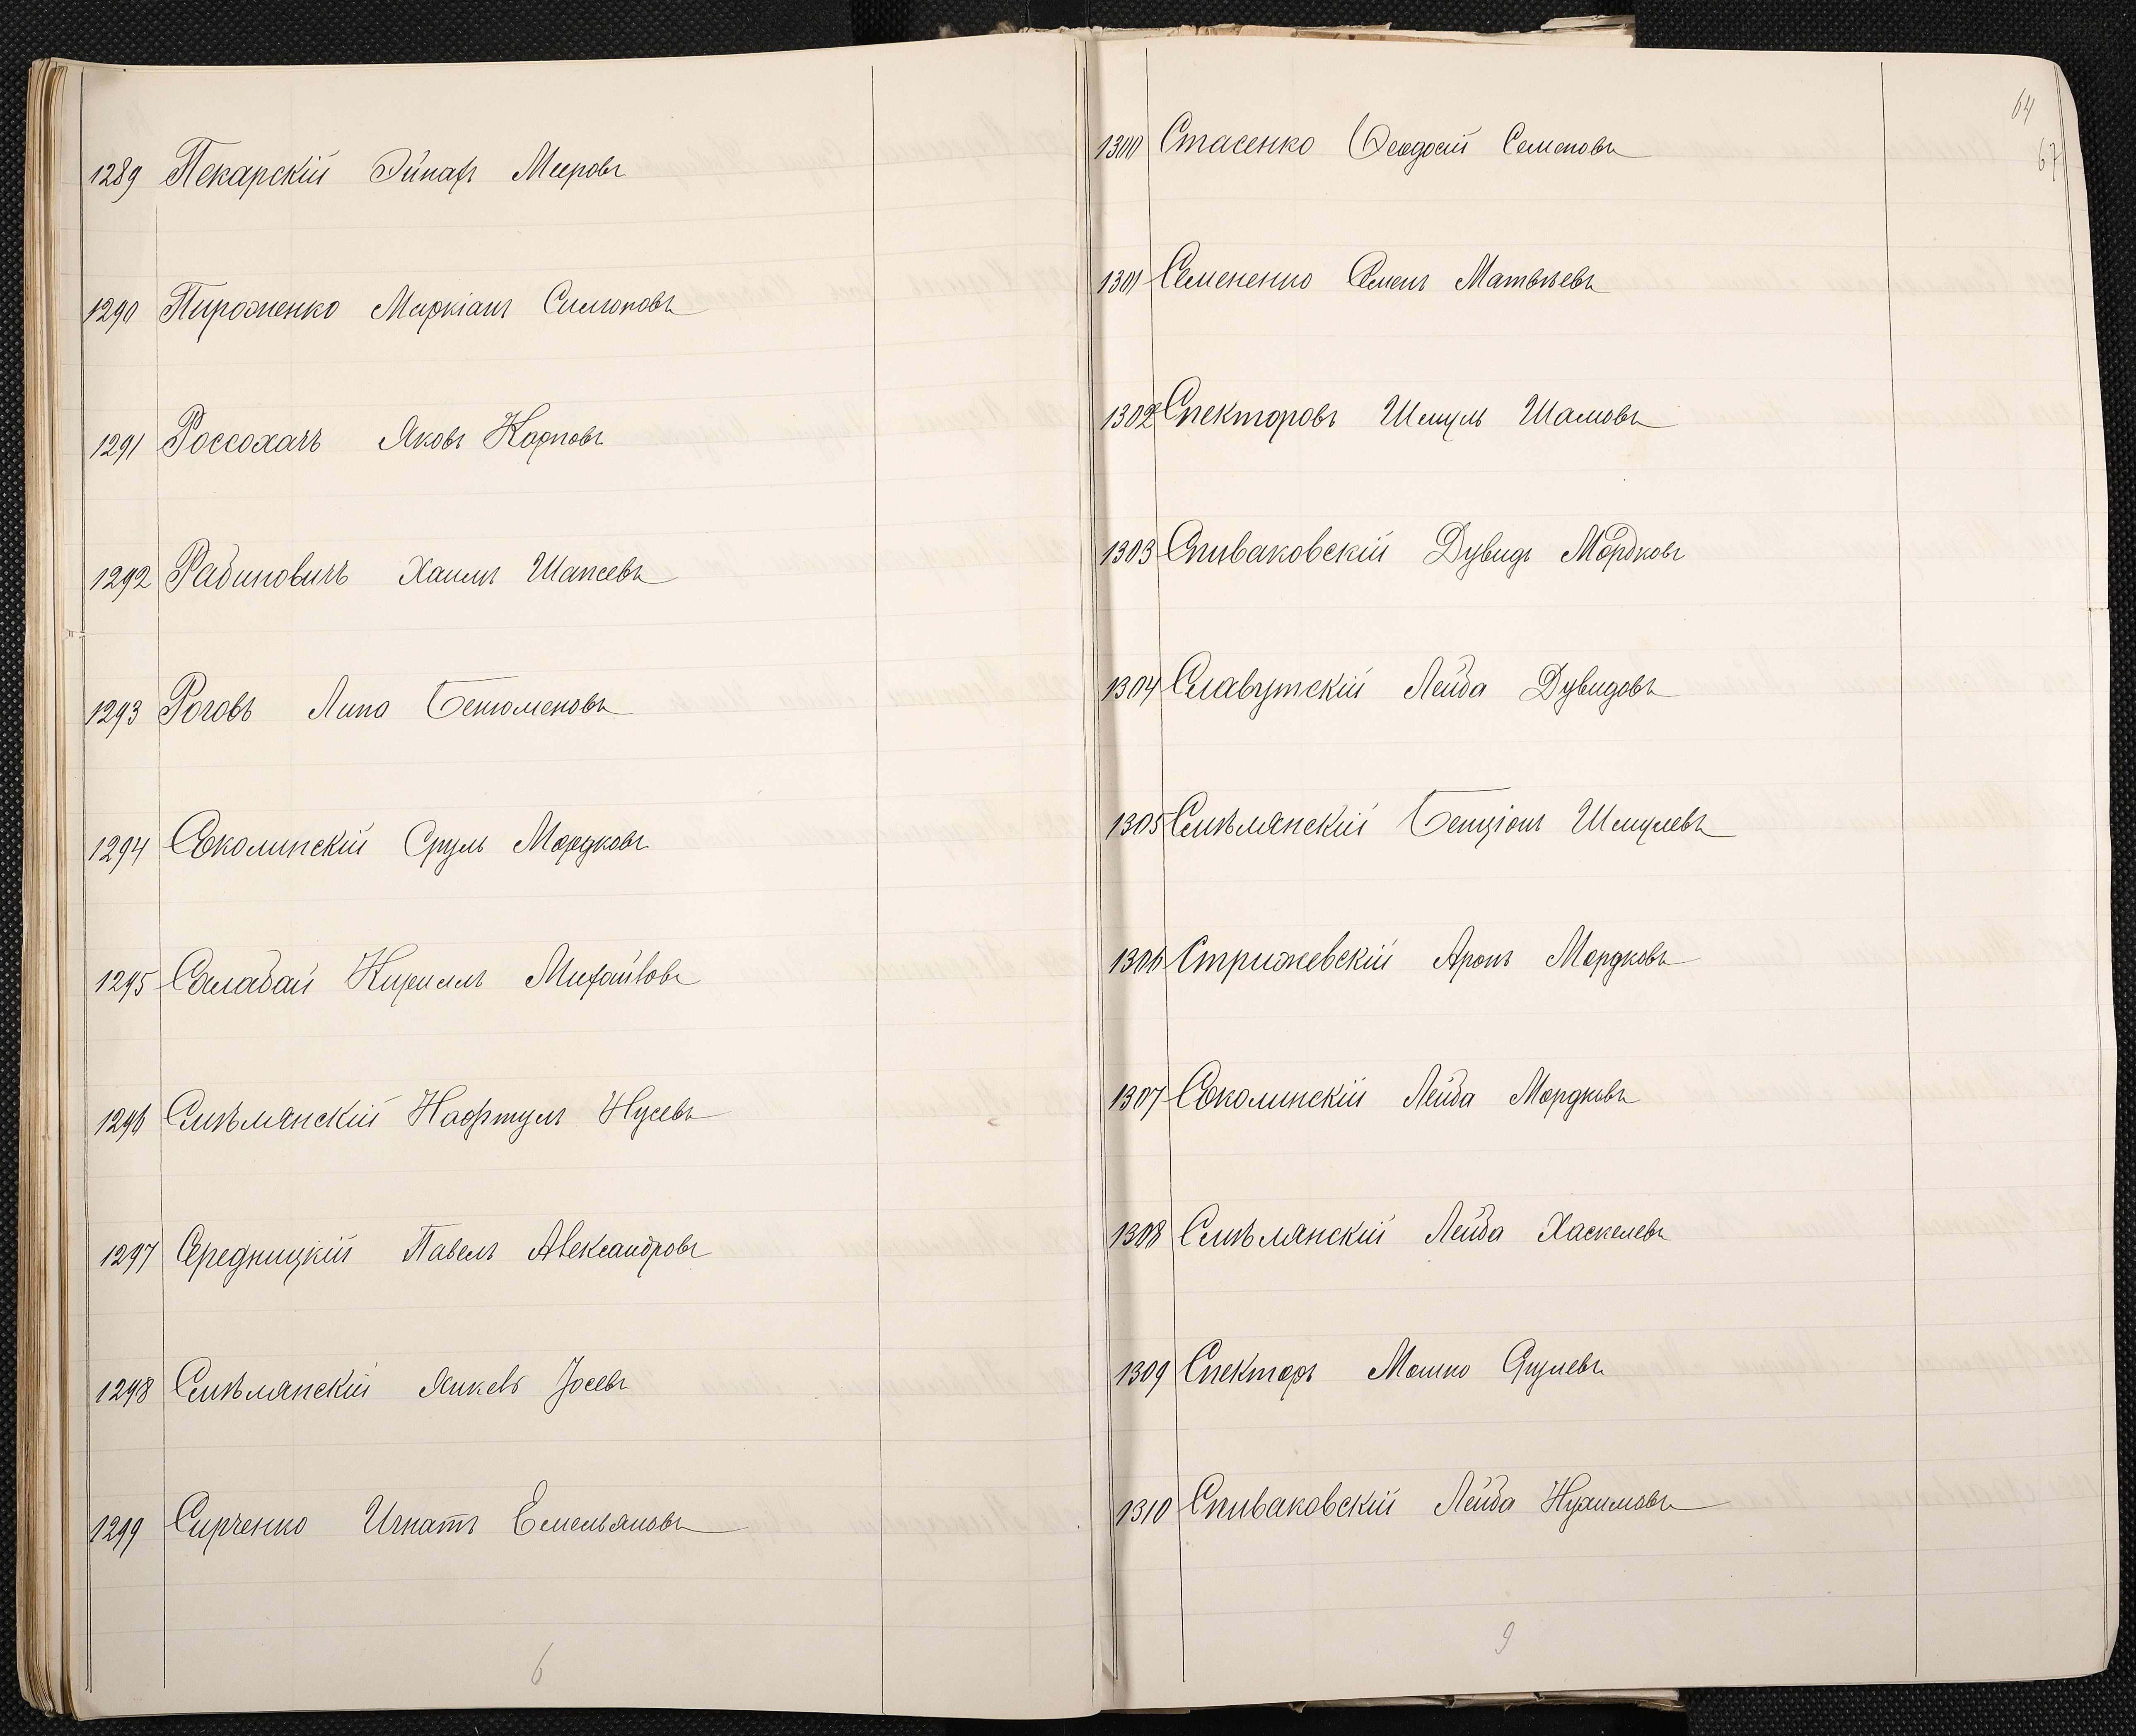 1289 Пекарскій Эйнахъ Мееровъ
1290 Пироженко Маркіанъ Симоновъ
1291 Россохачъ Яковъ Карповъ
1292 Рабиновичъ Хаимъ Шапсевъ
1293 Роговъ Липа Бенюменовъ
1294 Соколинскій Сруль Мордковъ
1295 Салабай Кириллъ Михайловъ
1296 Смѣлянскій Нафтулъ Нусевъ
1297 Середницкій Павелъ Александровъ
1298 Смѣлянскій Янкевъ Іосевъ
1299 Сирченко Игнатъ Емельяновъ
6
64
67
1300 Стасенко Ѳеодосій Семеновъ
1301 Семененко Семенъ Матвѣевъ
1302 Спекторовъ Шмуль Шамовъ
1303 Спиваковскій Дувидъ Мордковъ
1304 Славутскій Лейба Дувидовъ
1305 Смѣлянскій Бенціонъ Шмулевъ
1306 Стрижевскій Аронъ Мордковъ
1307 Соколинскій Лейба Мордковъ
1308 Смѣлянскій Лейба Хаскелевъ
1309 Спекторъ Мошко Срулевъ
1310 Спиваковскій Лейба Нухимовъ
9